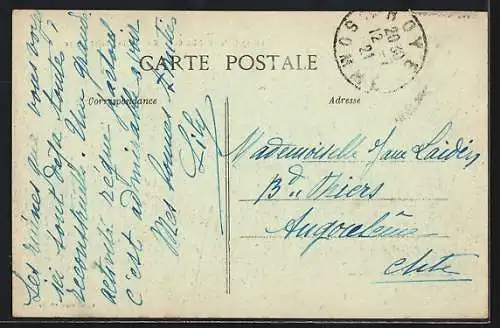 CARTE POSTALE
Correspondance
Adresse
ROYE
20 30
12 - 7
21
SOMME
Les ruines que vous voyez
ici sont déjà toutes
reconstruites. Une grande
activité règne partout
c'est admirable à voir
Mes bonnes Amitiés
Lily
Mademoiselle Jane
Bd Thiers
Angoulême
Chte